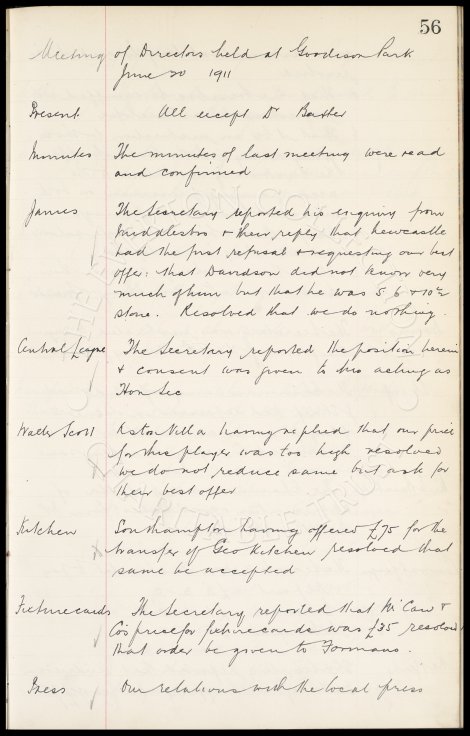 56
Meeting of Directors held at Goodison Park
June 20 1911
Present All except Dr Baxter
Minutes The minutes of last meeting were read
and confirmed
James The Secretary reported his enquiry from
Middlesbro & their reply that Newcastle
had the first refusal & requesting our best
offer: that Davidson did not know very
much of him but that he was 5.6 & 10½
stone. Resolved that we do nothing.
Central League The Secretary reported the position herein
& consent was given to his acting as
Hon Sec
Walter Scott Aston Villa having replied that our price
for this player was too high resolved
we do not reduce same but ask for
their best offer
Kitchen Southampton having offered £75 for the
transfer of Geo Kitchen resolved that
same be accepted
Fixture cards The Secretary reported that McCaw &
Co's price for fixture cards was £35 resolved
that order be given to Formans.
Press Our relations with the local press